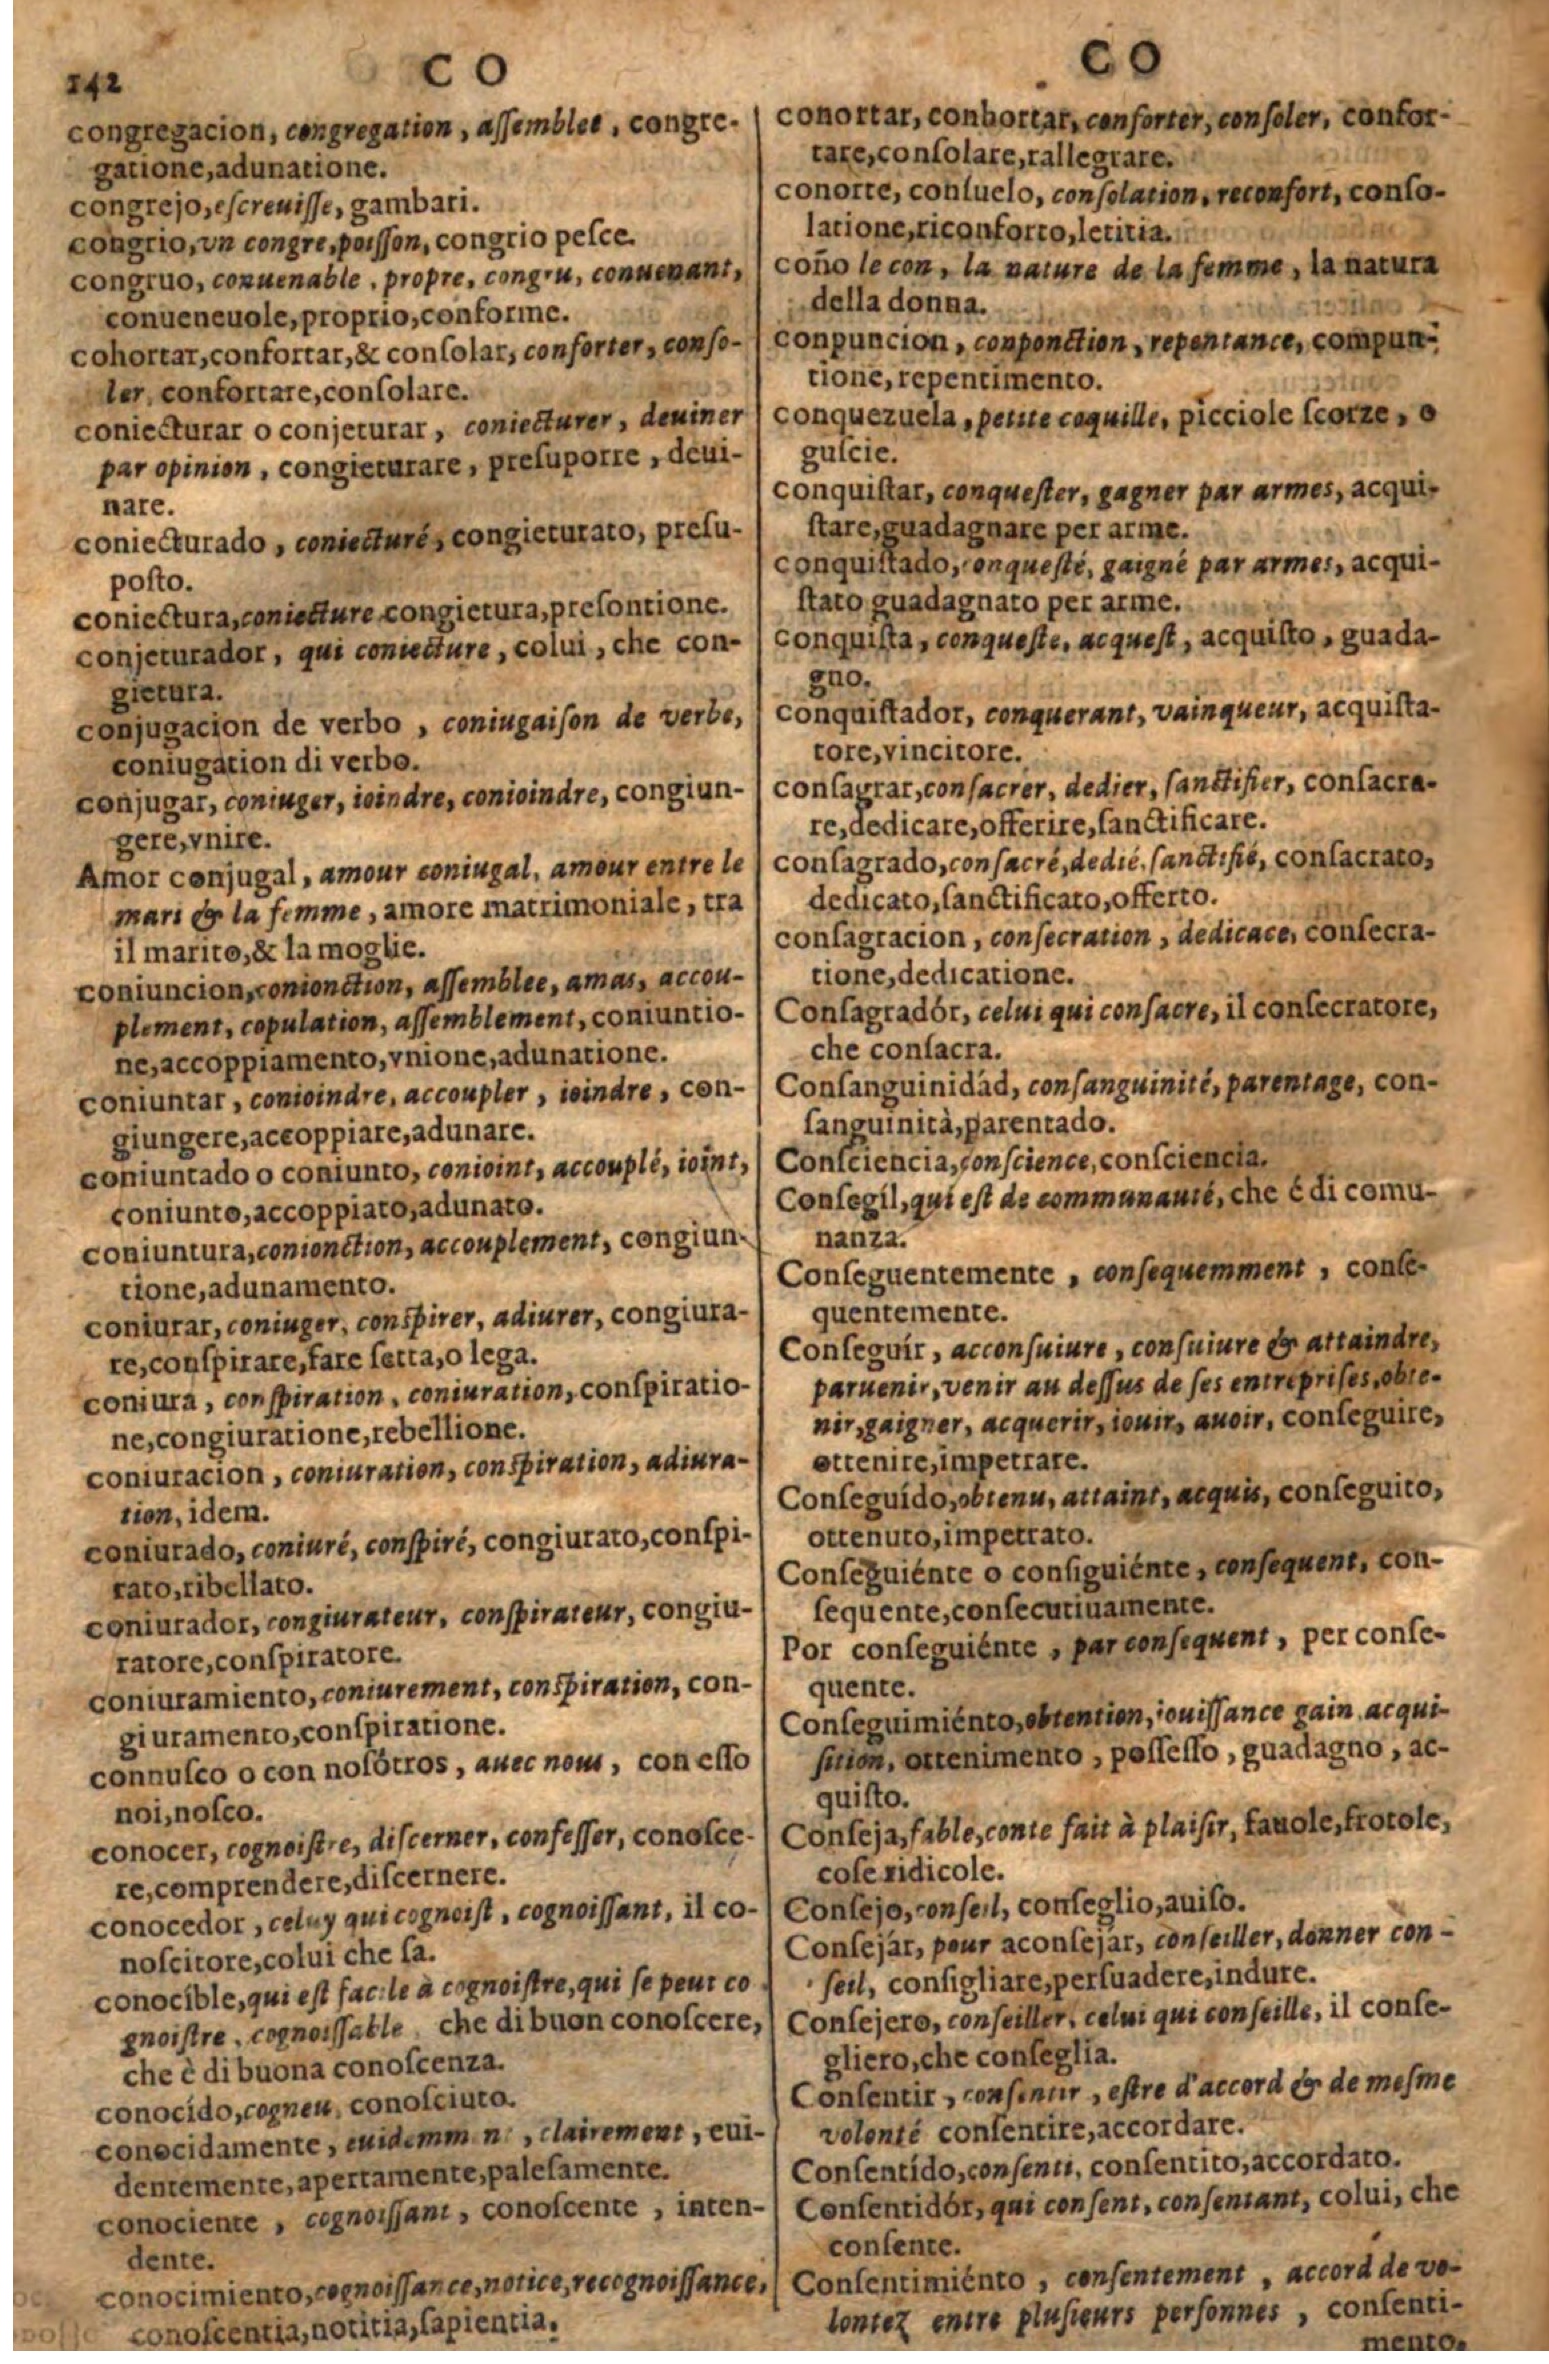 142
C O
congregacion, congregation, aſſemblee, congre-
gatione,adunatione.
congrejo,eſcreuiſſe, gambari.
congrio,vn congre,poiſſon, congrio peſce.
congruo, conuenable, propre, congru, conuenant,
conueneuole,proprio,conforme.
cohortar,confortar,& conſolar, conforter, conſo-
ler, confortare,conſolare.
coniecturar o conjeturar, coniecturer, deuiner
par opinion, congieturare, preſuporre, deui-
nare.
coniecturado, coniecturé, congieturato, preſu-
poſto.
coniectura,coniecture congietura,preſontione.
conjeturador, qui coniecture, colui, che con-
gietura.
conjugacion de verbo, coniugaiſon de verbe,
coniugation di verbo.
conjugar, coniuger, ioindre, conioindre, congiun-
gere,vnire.
Amor conjugal, amour coniugal, amour entre le
mari & la femme, amore matrimoniale, tra
il marito,& la moglie.
coniuncion,conionction, aſſemblee, amas, accou-
plement, copulation, aſſemblement, coniuntio-
ne,accoppiamento,vnione,adunatione.
coniuntar, conioindre, accoupler, ioindre, con-
giungere,accoppiare,adunare.
coniuntado o coniunto, conioint, accouplé, ioint,
coniunto,accoppiato,adunato.
coniuntura,conionction, accouplement, congiun-
tione,adunamento.
coniurar, coniuger, conſpirer, adiurer, congiura-
re,conſpirare,fare ſetta,o lega.
coniura, conſpiration, coniuration, conſpiratio-
ne,congiuratione,rebellione.
coniuracion, coniuration, conſpiration, adiura-
tion, idem.
coniurado, coniuré, conſpiré, congiurato,conſpi-
rato,ribellato.
coniurador, congiurateur, conſpirateur, congiu-
ratore,conſpiratore.
coniuramiento, coniurement, conſpiration, con-
giuramento,conſpiratione.
connuſco o con noſótros, auec nous, con eſſo
noi,noſco.
conocer, cognoiſtre, diſcerner, confeſſer, conoſce-
re,comprendere,diſcernere.
conocedor, celuy qui cognoiſt, cognoiſſant, il co-
noſcitore,colui che ſa.
conocíble,qui eſt facile à cognoiſtre,qui ſe peut co
gnoiſtre, cognoiſſable, che di buon conoſcere,
che è di buona conoſcenza.
conocído,cogneu, conoſciuto.
conocidamente, euidemment, clairement, eui-
dentemente,apertamente,paleſamente.
conociente, cognoiſſant, conoſcente, inten-
dente.
conocimiento,cognoiſſance,notice,recognoiſſance,
conoſcentia,notitia,ſapientia.
C O
conortar, conhortar, conforter, conſoler, confor-
tare,conſolare,rallegrare.
conorte, conſuelo, conſolation, reconfort, conſo-
latione,riconforto,letitia.
coño le con, la nature de la femme, la natura
della donna.
conpuncion, conponction, repentance, compun-
tione,repentimento.
conquezuela, petite coquille, picciole ſcorze, o
guſcie.
conquiſtar, conqueſter, gagner par armes, acqui-
ſtare,guadagnare per arme.
conquiſtado,conqueſté, gaigné par armes, acqui-
ſtato guadagnato per arme.
conquiſta, conqueſte, acqueſt, acquiſto, guada-
gno.
conquiſtador, conquerant, vainqueur, acquiſta-
tore,vincitore.
conſagrar,conſacrer, dedier, ſanctifier, conſacra-
re,dedicare,offerire,ſanctificare.
conſagrado,conſacré,dedié,ſanctifié, conſacrato,
dedicato,ſanctificato,offerto.
conſagracion, conſecration, dedicace, conſecra-
tione,dedicatione.
Conſagradór, celui qui conſacre, il conſecratore,
che conſacra.
Conſanguinidád, conſanguinité, parentage, con-
ſanguinità,parentado.
Conſciencia,conſcience,conſciencia.
Conſegíl,qui eſt de communauté, che é di comu-
nanza.
Conſeguentemente, conſequemment, conſe-
quentemente.
Conſeguír, acconſuiure, conſuiure & attaindre,
paruenir,venir au deſſus de ſes entrepriſes,obte-
nir,gaigner, acquerir, iouir, auoir, conſeguire,
ottenire,impetrare.
Conſeguído,obtenu, attaint, acquis, conſeguito,
ottenuto,impetrato.
Conſeguiénte o conſiguiénte, conſequent, con-
ſequente,conſecutiuamente.
Por conſeguiénte, par conſequent, per conſe-
quente.
Conſeguimiénto,obtention,iouiſſance gain acqui-
ſition, ottenimento, poſſeſſo, guadagno, ac-
quiſto.
Conſeja,fable,conte fait à plaiſir, fauole,frotole,
coſe ridicole.
Conſejo,conſeil, conſeglio,auiſo.
Conſejár, pour aconſejár, conſeiller, donner con-
ſeil, conſigliare,perſuadere,indure.
Conſejero, conſeiller, celui qui conſeille, il conſe-
gliero,che conſeglia.
Conſentir, conſentir, eſtre d'accord & de meſme
volonté conſentire,accordare.
Conſentído,conſenti, conſentito,accordato.
Conſentidór, qui conſent, conſentant, colui, che
conſente.
Conſentimiénto, conſentement, accord de vo-
lontez entre pluſieurs perſonnes, conſenti-
mento.